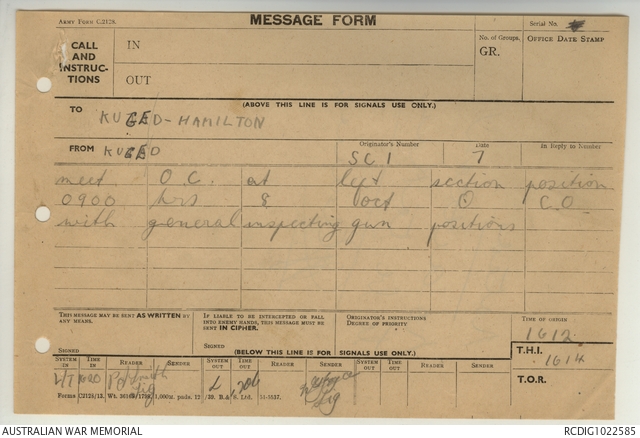 ARMY FORM C.2128.
MESSAGE FORM
Serial No.
CALL AND INSTRUC-TIONS
IN
OUT
No. of Groups.
GR.
OFFICE DATE STAMP
(ABOVE THIS LINE IS FOR SIGNALS USE ONLY.)
TO KUGED - HAMILTON
FROM KUGED
Originator's Number SC 1
Date 7
In Reply to Number
meet O.C. at left section position
0900 hrs 8 oct C.O
with general inspecting gun positions
THIS MESSAGE MAY BE SENT AS WRITTEN BY ANY MEANS.
SIGNED
IF LIABLE TO BE INTERCEPTED OR FALL INTO ENEMY HANDS, THIS MESSAGE MUST BE SENT IN CIPHER.
SIGNED
ORIGINATOR'S INSTRUCTIONS
DEGREE OF PRIORITY
TIME OF ORIGIN
1612
(BELOW THIS LINE IS FOR SIGNALS USE ONLY.)
T.H.I. 1614
T.O.R.
SYSTEM IN
TIME IN
READER
SENDER
SYSTEM OUT
TIME OUT
READER
SENDER
SYSTEM OUT
TIME OUT
READER
SENDER
L/T Sig L Sig
AUSTRALIAN WAR MEMORIAL
RCDIG1022585